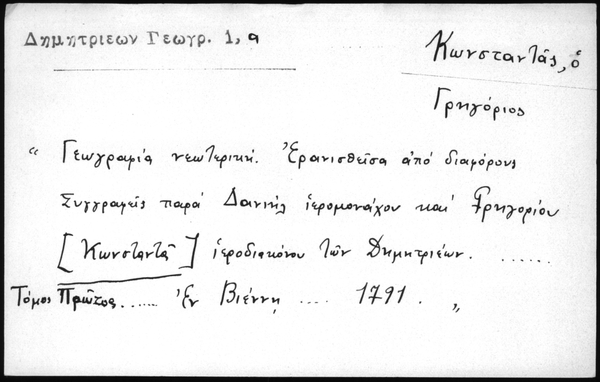 Δημητριεων Γεωγρ. 1, α
Κωνσταντᾶς, ὁ
Γρηγόριος
“ Γεωγραφία νεωτερική. Ἐρανισθεῖσα ἀπό διαφόρους
Συγγραφεῖς παρά Δανιήλ ἱερομονάχου καί Γρηγορίου
[Κωνσταντᾶ] ἱεροδιακόνου τῶν Δημητριέων. ......
Τόμος Πρῶτος...... Ἐν Βιέννῃ .... 1791. „